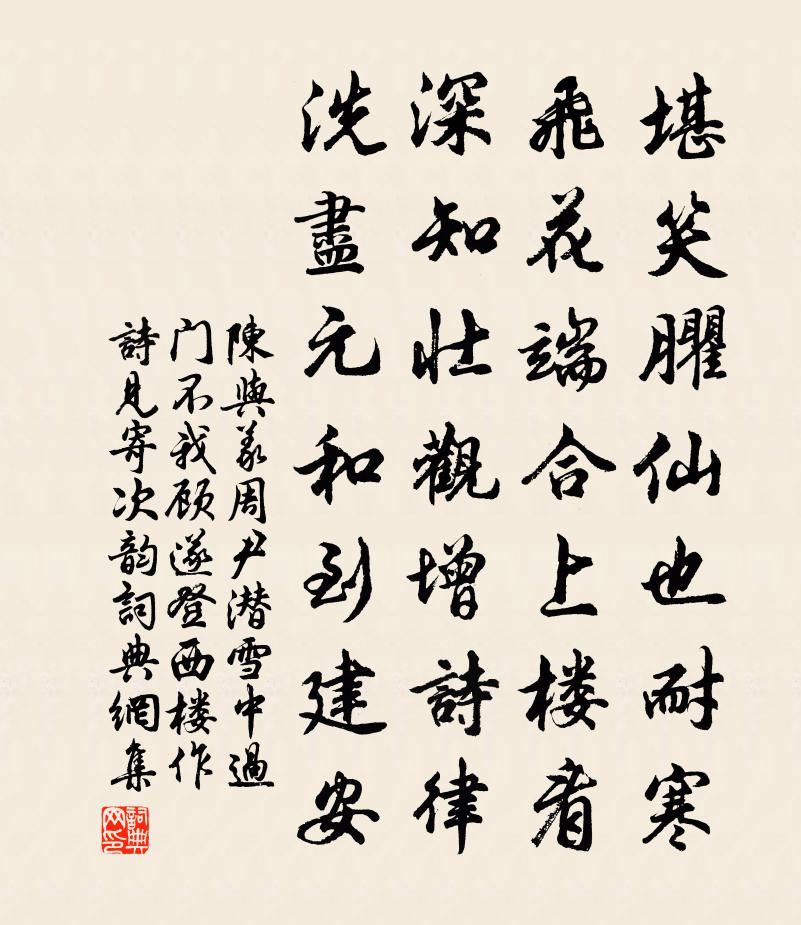 堪笑臞仙也耐寒
飛花端合上楼看
深知壮觀增詩律
洗盡元和到建安
陳與義周尹潜雪中過
门不我顾遂登西楼作
詩見寄次韵詞典網集
詞典网印